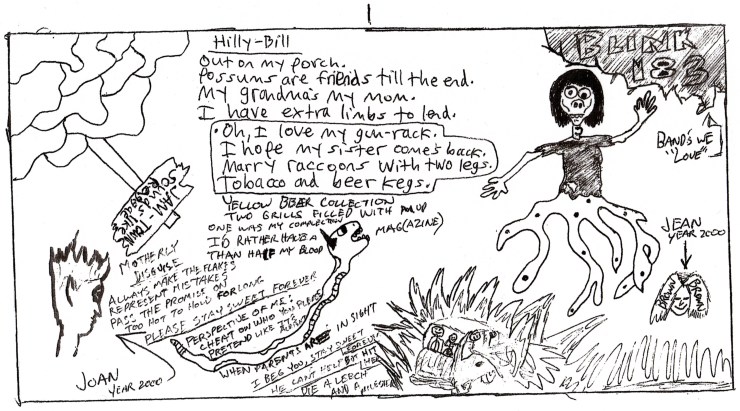 Hilly-Bill
Out on my porch.
Possums are friends till the end.
My grandma's my mom.
I have extra limbs to lend.
Oh, I love my gun-rack.
I hope my sister comes back.
Marry raccoons with two legs.
Tobacco and beer kegs.
YELLOW BEER COLLECTION
TWO GRILLS FILLED WITH
ONE WAS MY COMPLECTION
MAG(AZINE)
I'D RATHER HAVE A
THAN HALF MY BLOOD
BLINK
182
BAND'S WE
"LOVE"
JEAN
YEAR 2000
BROWN
JAM-TOWN
SOUNDS LIKE
MOTHERLY
DISGUISE
ALWAYS MAKE THE FLAKES
REPRESENT MISTAKES
PASS THE PROMISE ON
TOO HOT TO HOLD FOR LONG
PLEASE STAY SWEET FOREVER
PERSPECTIVE OF ME:
CHEAT ON WHO YOU PLEASE
PRETEND LIKE IT'S ALRIGHT
WHEN PARENTS IN SIGHT
I BEG YOU, STAY SWEET FOREVER
HE CAN'T HELP BUT HIT HER
DIE A LEECH
AND A
JOAN
YEAR 2000